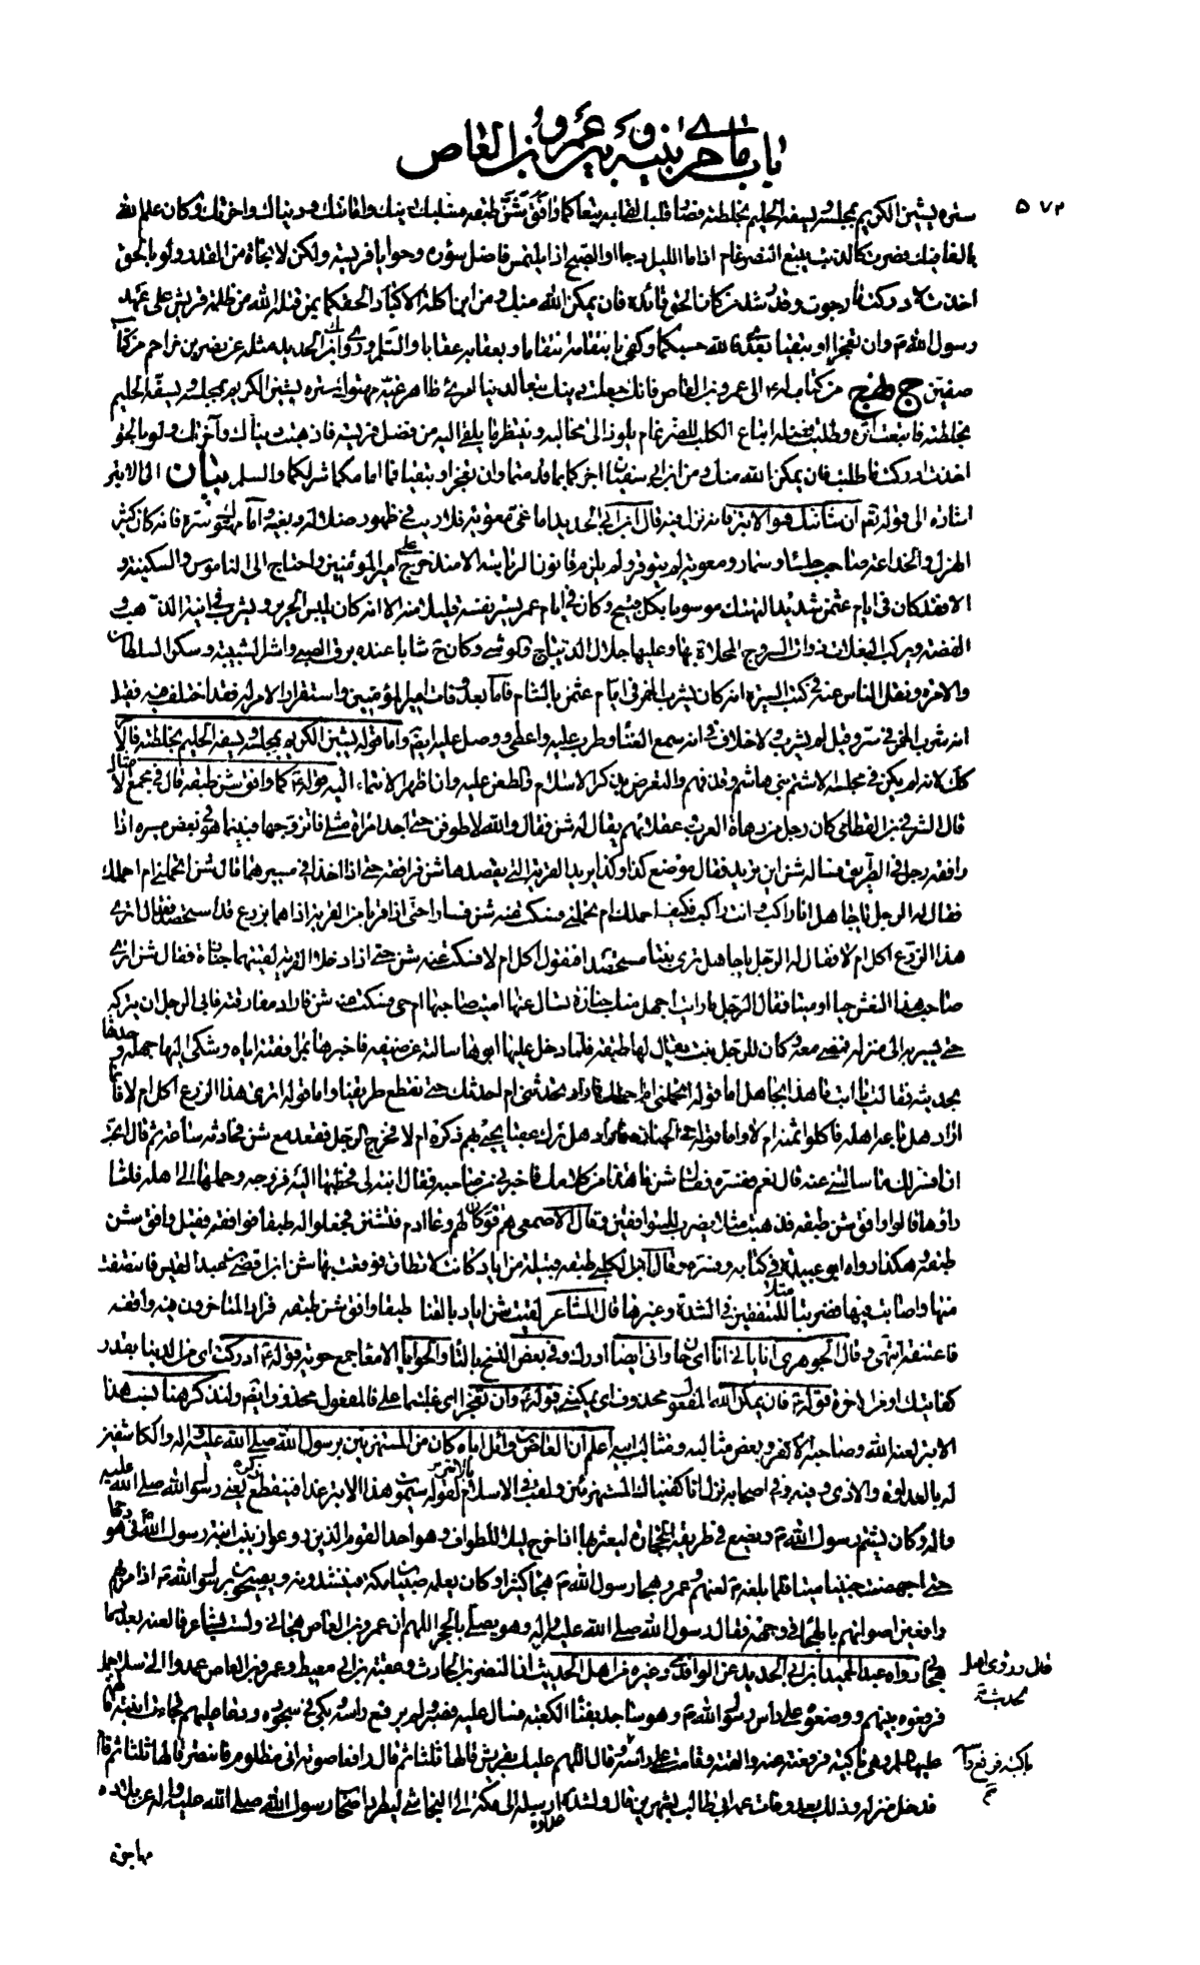 باب ما جرى بينه وبين عمرو بن العاص
٥٧٢
ستره يشين الكريم بمجلسه ويسفه الحليم بخلطته فصار قلبك لقلبه تبعا كما وافق شن طبقه فسلبك دينك وامانتك ودنياك واخرتك وكان علم الله
بالغا فيك فصرت كالذئب يتبع الضرغام اذا ما الليل دجا او الصبح اذا يلتمس فاضل سؤره وحوايا فريسته ولكن لا نجاة من القدر ولو بالحق
اخذت لادركت ما رجوت وقد رشد من كان الحق قائده فان يمكن الله منك ومن ابن آكلة الاكباد الحقتكما بمن قتله الله من ظلمة قريش على عهد
رسول الله ص وان تعجزا او تبقيا بعد فالله حسبكما وكفى بانتقامه انتقاما وبعقابه عقابا والسلم وروى ابن ابي الحديد مثله عن نصر بن مزاحم من كتاب
صفين ج نهج من كتاب له ع الى عمرو بن العاص فانك جعلت دينك تبعا لدنيا امرئ ظاهر غيه مهتوك ستره يشين الكريم بمجلسه ويسفه الحليم
بخلطته فاتبعت اثره وطلبت فضله اتباع الكلب للضرغام يلوذ الى مخالبه وينتظر ما يلقى اليه من فضل فريسته فاذهبت دنياك وآخرتك ولو بالحق
اخذت ادركت ما طلبت فان يمكن الله منك ومن ابن ابي سفيان اجزكما بما قدمتما وان تعجزا وتبقيا فما امامكما شر لكما والسلم بيان الى الابتر
اشاره الى قوله تعم ان شانئك هو الابتر فانه نزل فيه قال ابن ابي الحديد اما غي معوية فلا ريب في ظهور ضلاله وبغيه واما مهتوك ستره فانه كان كثير
الهزل والخلاعة صاحب جلساء وسمار ومعوية لم يتوقر ولم يلزم قانون الرئاسة الا منذ خرج على امير المؤمنين واحتاج الى الناموس والسكينة و
الا فقد كان في ايام عثمن شديد التهتك موسوما بكل قبيح وكان في ايام عمر يستر نفسه قليلا منه الا انه كان يلبس الحرير ويشرب في انية الذهب و
الفضة ويركب البغلات ذوات السروج المحلاة بها وعليها جلال الديباج والوشي وكان ح شابا عنده نزق الصبي واثر الشبيبة وسكر السلطان
والامرة ونقل الناس عنه في كتب السيرة انه كان يشرب الخمر في ايام عثمن بالشام فاما بعد وفات امير المؤمنين واستقرار الامر له فقد اختلف فيه فقيل
انه شرب الخمر في ستر وقيل لم يشرب ولا خلاف في انه سمع الغناء وطرب عليه واعطى ووصل عليه ايضا واما قوله يشين الكريم بمجلسه ويسفه الحليم بخلطته فالامر
كك لانه لم يكن في مجلسه الا شتم بني هاشم وقذفهم والتعرض بذكر الاسلام والطعن عليه وان اظهر الانتماء اليه قوله ع كما وافق شن طبقه قال في مجمع الامثال
قال الشرقي بن القطامي كان رجل من دهاة العرب وعقلائهم يقال له شن فقال والله لاطوفن حتى اجد امراة مثلي فاتزوجها فبينما هو في بعض مسيره اذا
وافقه رجل في الطريق فساله شن اين تريد فقال موضع كذا وكذا يريد القرية التي يقصدها شن فرافقه حتى اذا اخذا في مسيرهما قال شن اتحملني ام احملك
فقال له الرجل يا جاهل انا راكب وانت راكب فكيف احملك ام تحملني فسكت عنه شن فسارا حتى اذا قربا من القرية اذا هما بزرع قد استحصد فقال اترى
هذا الزرع اكل ام لا فقال له الرجل يا جاهل ترى نبتا مستحصدا فتقول اكل ام لا فسكت عنه شن حتى اذا دخلا القرية لقيتهما جنازة فقال شن اترى
صاحب هذا النعش حيا او ميتا فقال الرجل ما رايت اجهل منك جنازة تسال عنها اميت صاحبها ام حي فسكت عنه شن فاراد مفارقته فابى الرجل ان يتركه
حتى يسير به الى منزله فمضى معه وكان للرجل بنت يقال لها طبقه فلما دخل عليها ابوها سالته عن ضيفه فاخبرها بمرافقته اياه وشكى اليها جهله وحدثها
بحديثه فقالت يا ابت ما هذا بجاهل اما قوله اتحملني ام احملك فاراد تحدثني ام احدثك حتى نقطع طريقنا واما قوله اترى هذا الزرع اكل ام لا فانما
اراد هل باعه اهله فاكلوا ثمنه ام لا واما قوله في الجنازة فاراد هل ترك عقبا يحيى بهم ذكره ام لا فخرج الرجل فقعد مع شن فحادثه ساعة ثم قال اتحب
ان افسر لك ما سالتني عنه قال نعم ففسره فقال شن ما هذا من كلامك فاخبرني من صاحبه فقال ابنة لي فخطبها اليه فزوجه وحملها الى اهله فلما
راوها قالوا وافق شن طبقه فذهبت مثلا يضرب للمتوافقين وقال الاصمعي هم قوم كان لهم وعاء ادم فتشنن فجعلوا له طبقا فوافقه فقيل وافق شن
طبقه هكذا رواه ابو عبيدة في كتابه وفسره وقال ابن الكلبي طبقه قبيلة من اياد كانت لا تطاق فوقعت بها شن ابن افصى بن عبد القيس فانتصفت
منها واصابت فيها فضربتا مثلا للمتفقين في الشدة وغيرها قال الشاعر لقيت شن اياد بالقنا طبقا وافق شن طبقه فزاد المتاخرون فيه وافقه
فاعتنقه انتهى وقال الجوهري انا يا نى انا اى حان وانى ايضا ادرك وفي بعض النسخ بالتاء والحوايا الامعاء جمع حوية قوله ع ادركت اى من الدنيا بقدر
كفايتك او من الاخرة قوله ع فان يمكن الله المفعول محذوف اى يمكنني قوله ع وان تعجزا اى غلبتما على فالمفعول محذوف ايضا ولنذكر هنا نسب هذا
الابتر لعنه الله وصاحبه الاكفر وبعض مثالبه ومثالب ابيه اعلم ان العاص بن وائل اباه كان من المستهزئين برسول الله صلى الله عليه واله والكاشفين
له بالعداوة والاذى وفيه وفي اصحابه نزل انا كفيناك المستهزئين ولقب في الاسلام بالابتر لقوله لقريش سيموت هذا الابتر غدا فينقطع ذكره يعني رسول الله صلى الله عليه
واله وكان يشتم رسول الله ص ويضع في طريقه الحجارة ليعثر بها اذا خرج ليلا للطواف وهو احد القوم الذين روعوا زينب ابنة رسول الله في هودجها
حتى اجهضت جنينا ميتا فلما بلغه ص لعنهم وعمرو هجا رسول الله ص هجاء كثيرا وكان يعلمه صبيان مكة فينشدونه ويصيحون برسول الله ص اذا مر بهم
رافعين اصواتهم بالهجاء في وجهه فقال رسول الله صلى الله عليه واله وهو يصلي بالحجر اللهم ان عمرو بن العاص هجاني ولست بشاعر فالعنه بعدد ما
هجاني رواه عبد الحميد ابن ابي الحديد عن الواقدي وغيره من اهل الحديث ان النضر بن الحارث وعقبة بن ابي معيط وعمرو بن العاص عمدوا الى سلا جمل
فرفعوه بينهم ووضعوه على راس رسول الله ص وهو ساجد بفناء الكعبة فسال عليه فصبر ولم يرفع راسه وبكى في سجوده ودعا عليهم فجاءت ابنته فاطمة
عليها السلم وهي باكية فرفعته عنه والقته وقامت على راسه وقال اللهم عليك بقريش قالها ثلثا ثم قال رافعا صوته اني مظلوم فانتصر قالها ثلثا ثم قام
فدخل منزله وذلك بعد وفات عمه ابي طالب بشهرين قال ولشدة عداوة ارسله اهل مكة الى النجاشي ليطرد اصحاب رسول الله صلى الله عليه واله عن بلاده
قال وروى اهل
الحديث
باكية فرفع راسه
مهاجرة